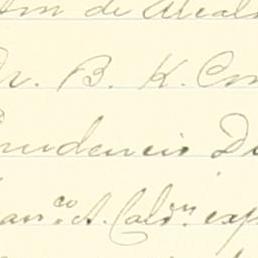 de Alcal
Dr. B. K. C
Prudencio D
an.co A. Cald.on exp